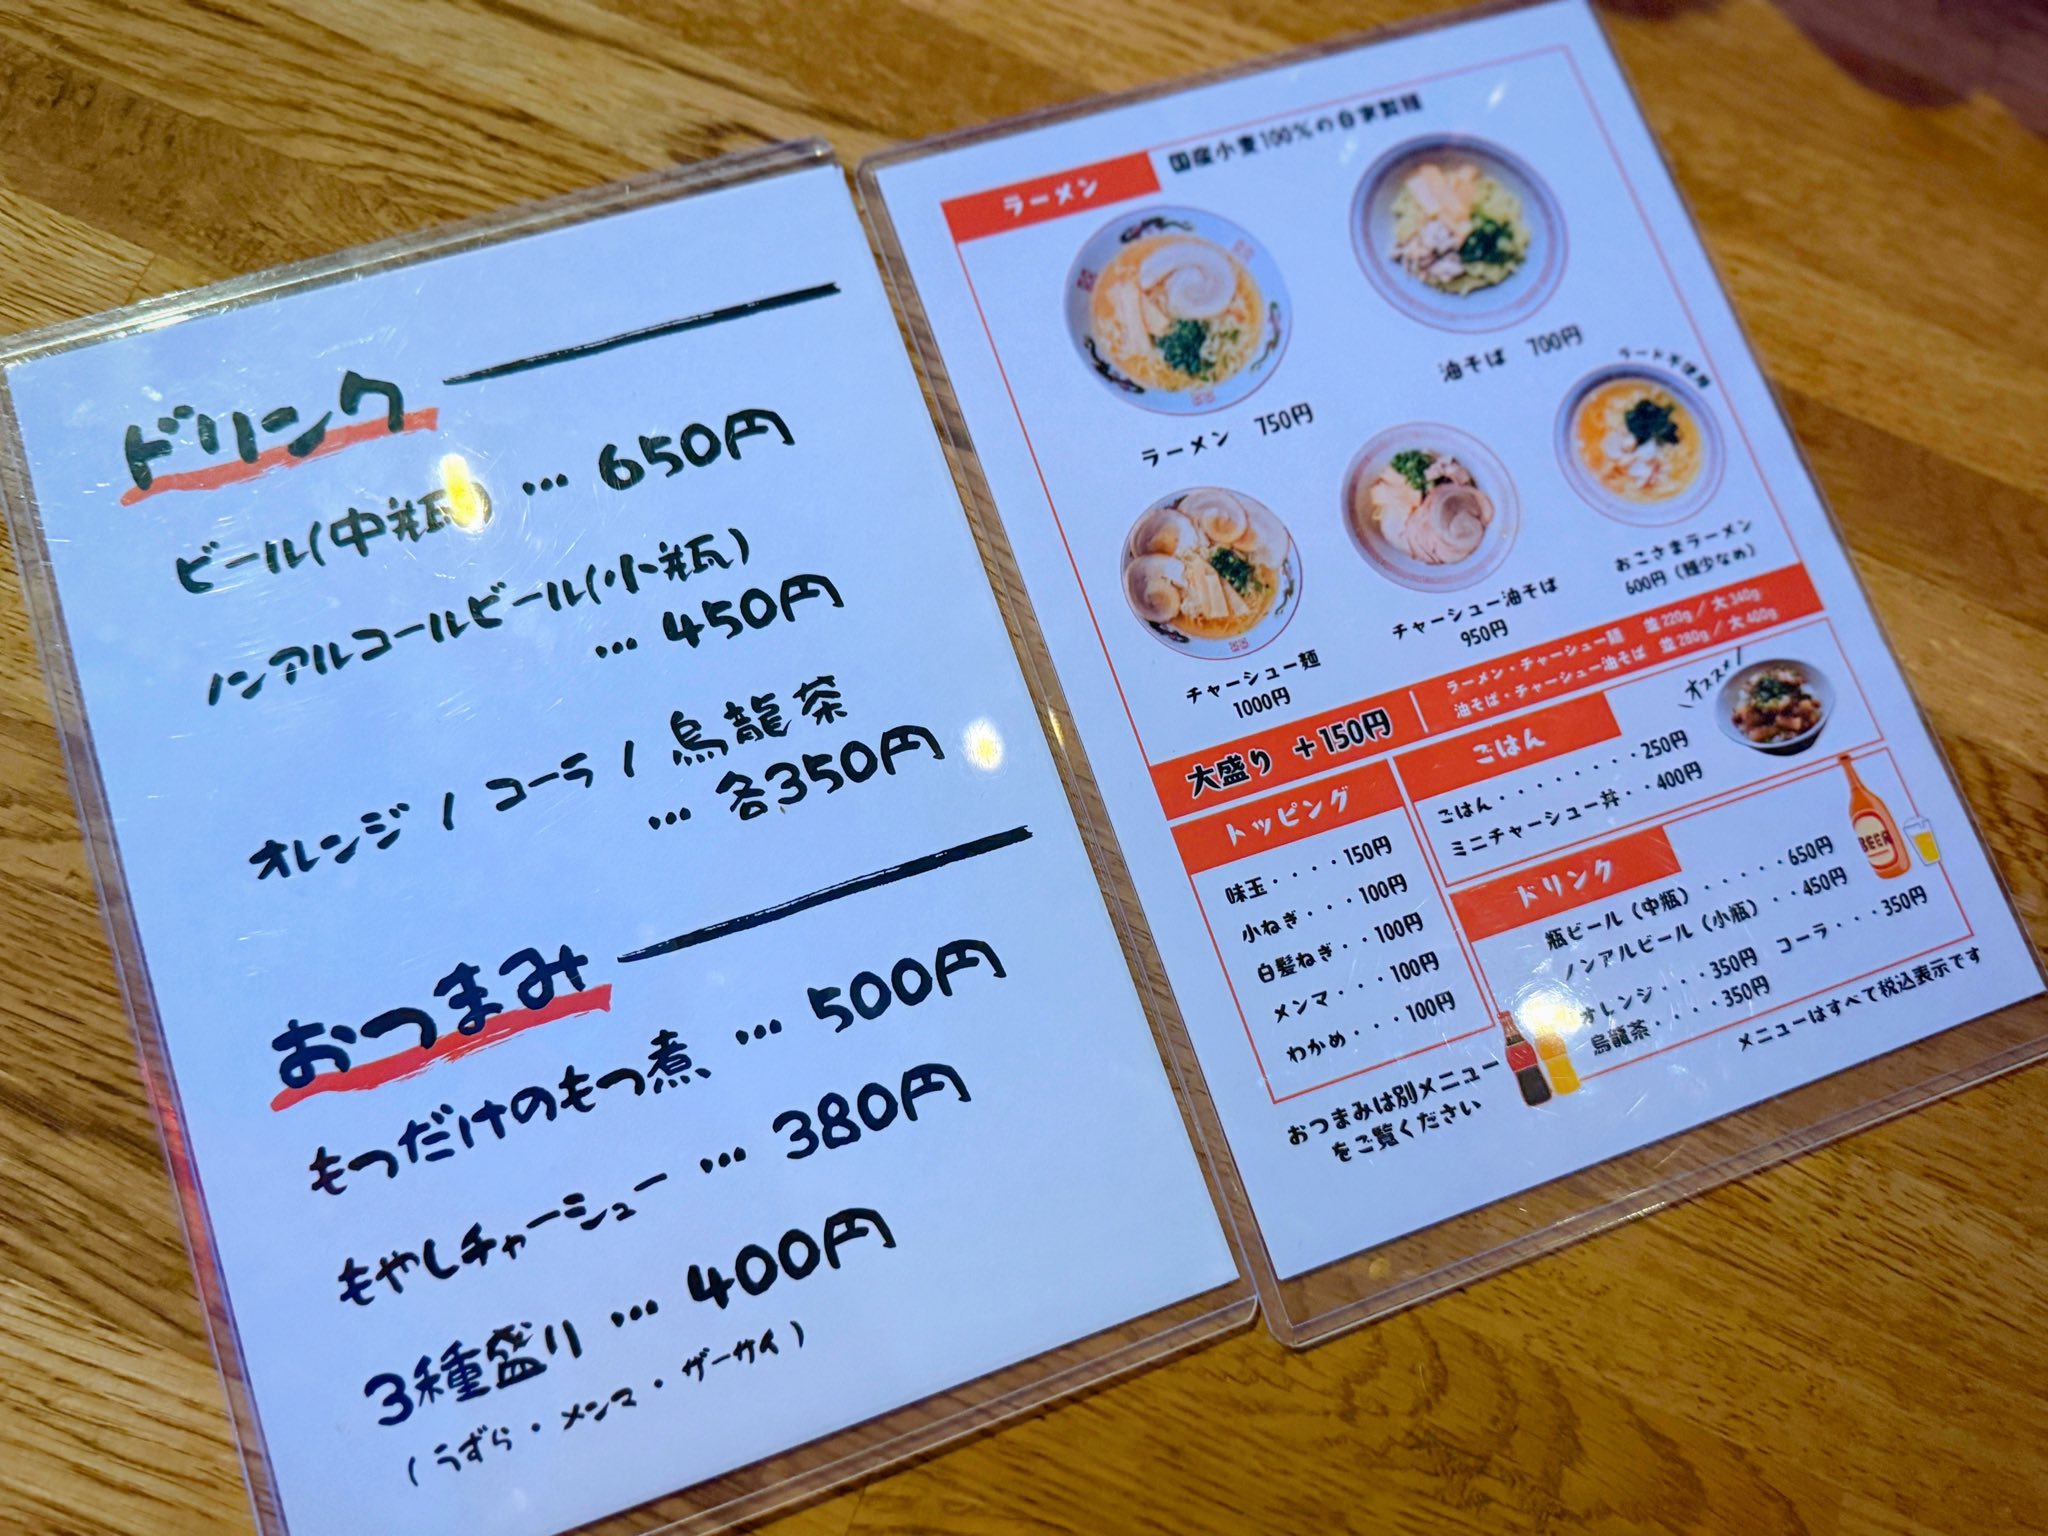 ドリンク
ビール(中瓶) … 650円
ノンアルコールビール(小瓶)
… 450円
オレンジ / コーラ / 烏龍茶
… 各350円
おつまみ
もつだけのもつ煮 … 500円
もやしチャーシュー … 380円
3種盛り … 400円
(うずら・メンマ・ザーサイ)
ラーメン
国産小麦100%の自家製麺
ラーメン 750円
油そば 700円
ラード不使用
チャーシュー麺
1000円
チャーシュー油そば
950円
おこさまラーメン
600円(麺少なめ)
大盛り +150円
ラーメン・チャーシュー麺 並220g/大340g
油そば・チャーシュー油そば 並280g/大400g
トッピング
味玉・・・・150円
小ねぎ・・・100円
白髪ねぎ・・100円
メンマ・・・100円
わかめ・・・100円
ごはん
\オススメ/
ごはん・・・・・・・・250円
ミニチャーシュー丼・・400円
ドリンク
瓶ビール(中瓶)・・・・・650円
ノンアルビール(小瓶)・・450円
オレンジ・・・350円 コーラ・・・350円
烏龍茶・・・・350円
BEER
おつまみは別メニュー
をご覧ください
メニューはすべて税込表示です